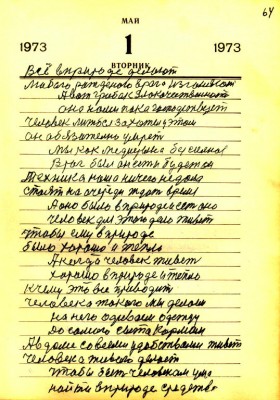 64
МАЙ
1973 1 1973
ВТОРНИК
Всё в природе делают
любого врага
А вот грибок злокачественности
она нами пока господствует
Человек лишь захоти, этом
он обязательно умрет
Мы как медицина бессильна
Враг был и есть будет он
Техника наша ничего не дала
стоят на очереди ждать время
А оно было в природе есть оно
Человек для этого дела живет
чтобы ему в природе
было хорошо и тепло
А когда человек живет
хорошо в природе и тепло
к чему это все приводит
Человека такого мы делаем
на него одеваем одежду
До самого сыта кормим
А в доме со всеми удобствами живет
Человека живого делает
чтобы быть человеком
найти в природе средства